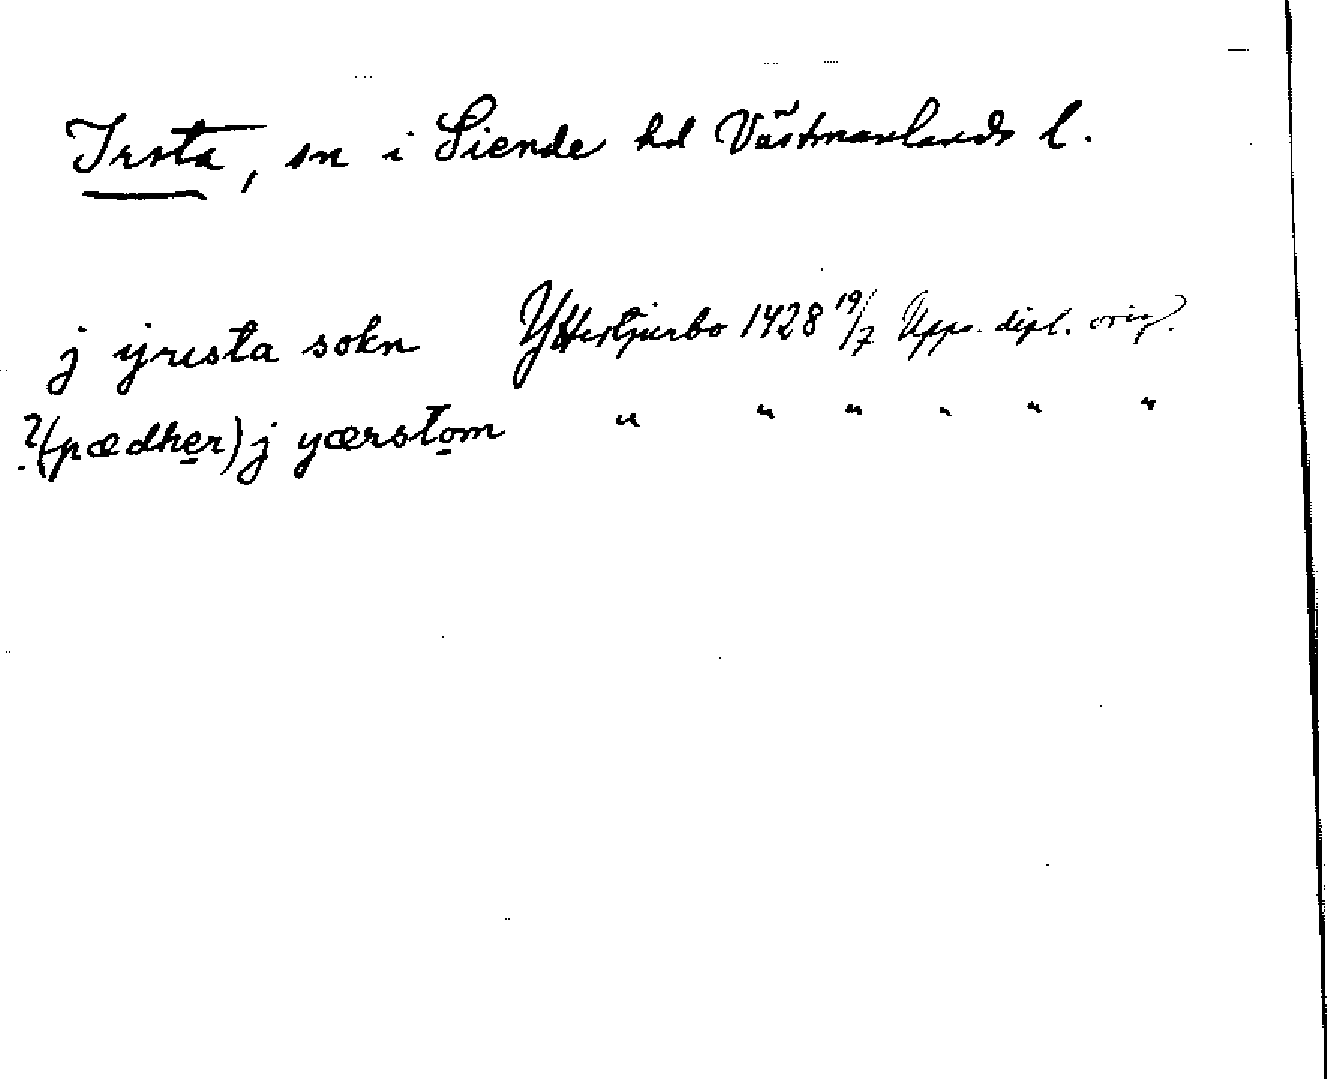 Irsta, sn i Siende hd Västmanlands l.
j ijrista sokn Yttertjurbo 1428 19/7 Upps. dipl. orig.
?(pædher) j yærstom " " " " " "